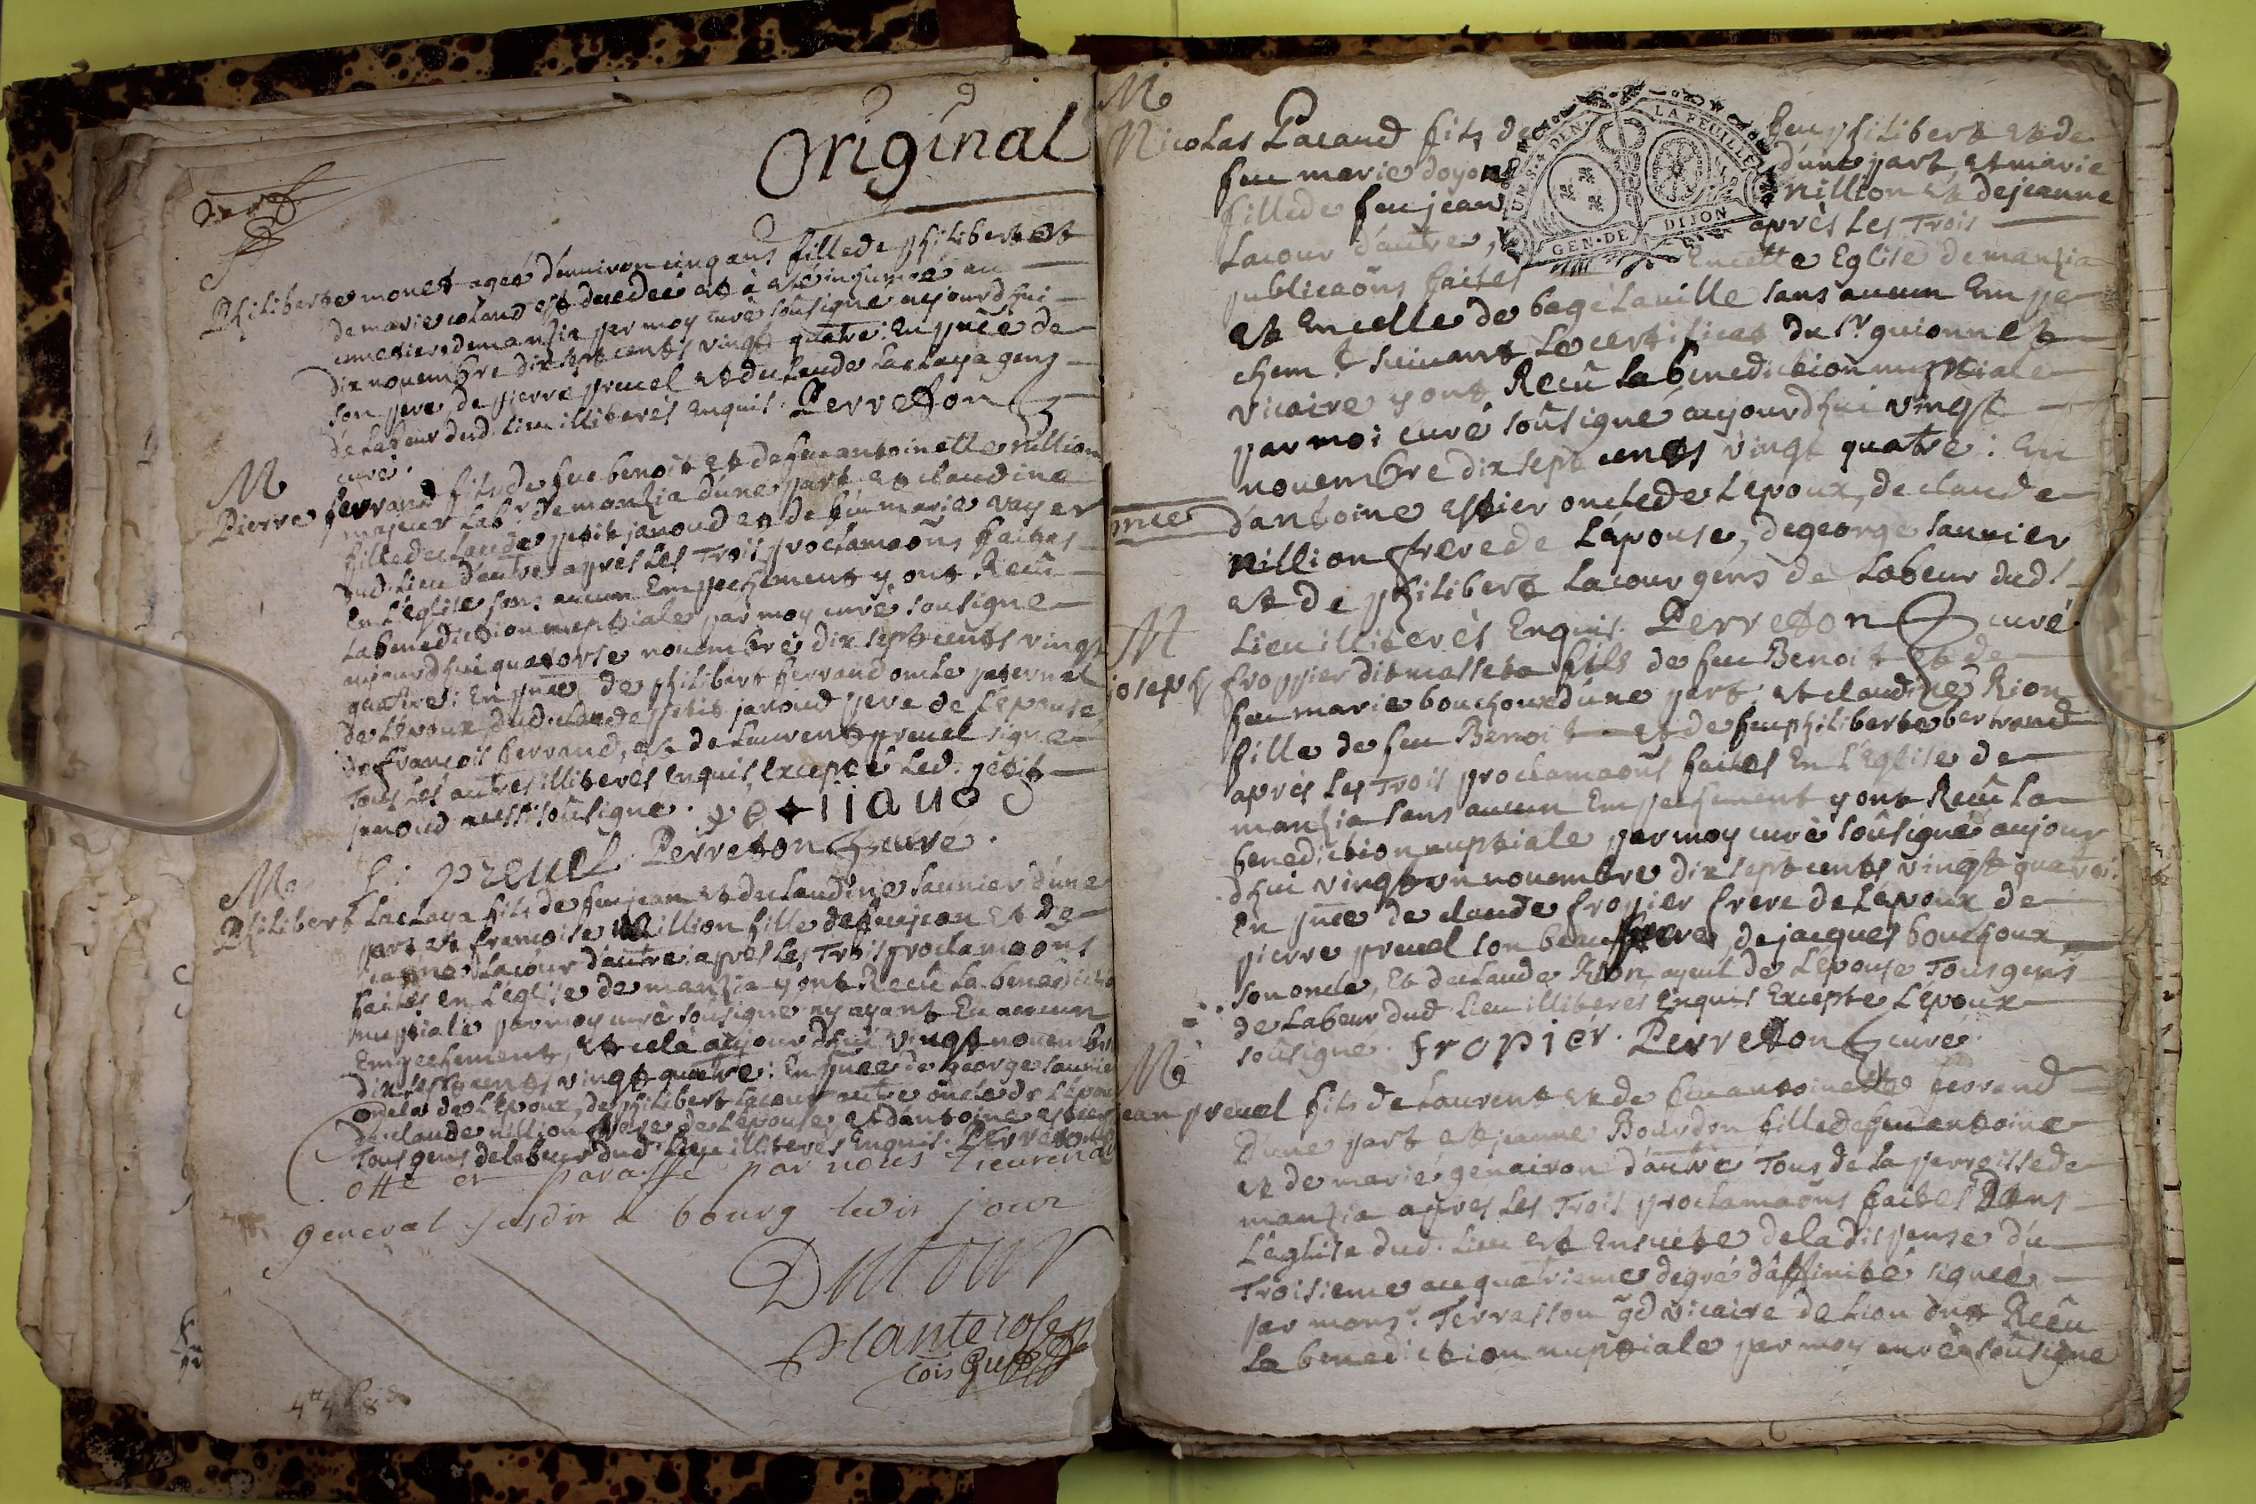 Original
Philiberte monet ageé d'environ cinq ans fille de philibert et
de marie coland est decedeé et à eté inhumeé au
cimetiere de manzia par moy curé soûsigné aujourdhui
dix novembre dix sept cents vingt quatre: En pñce de
son pere, de pierre prevel et de claude Laclaya gens
de Labeur dud. lieu illiterés enquis. Perreton
curé.
M
Pierre ferrand fils de feu benoit et de feu antoinette nillion
majeur Lab.r de manzia d'une part et claudine
fille de claude petit janoud et de feu marie vayer
dud. Lieu d'autre apres Les Trois proclamaõns faites
En L'eglise sans aucun Empechement y ont Recû
La benediction nuptiale par moy curé sousigne
aujourdhui quatorse novembre dix sept cents vingt
quatre: En pñce de philibert ferrand oncle paternel
de L'epoux, dud. claude petit janoud pere de L'epouse,
de françois berrand, et de Laurent prevel signe
Tous Les autres illiteres Enquis, excepté Led. petit
janoud aussi soûsigne. petitjanod
L: prevel Perreton curé.
M
Philibert Laclaya fils de feu jean et de claudine saunier d'une
part et françoise Nillion fille de feu jean et de
jeanne Lacour d'autre, apres Les Trois proclamaõns
faites en L'eglise de manzia y ont Recû La benedictio
nuptiale par moy curé soûsigne ny ayant Eu aucun
Empechement, et celà aujourdhui vingt novembre
dix sept cents vingt quatre: En pñce de george saunier
oncle de L'epoux, de philibert Lacour autre oncle de L'epoux
de claude nillion frere de L'epouse et d'antoine estier
Tous gens de labeur dud. Lieu illiterés Enquis. Perreton
otté et paraffé par nous Lieutenant
general susdit a bourg ledit jour
Dutour
Planterose
4tt 4s 8d
M
Nicolas Pacaud fils de feu philibert et de
feu marie doyon d'une part, et marie
fille de feu jean nillion et de jeanne
Lacour d'autre, après Les Trois
publicaõns faites En cette Eglise de manzia
et En celle de bagé la ville sans aucun Empe
chem.t suivant Le certificat du s.r guionnet
vicaire y ont Recû La benediction nuptiale
par moi curé soûsigné aujourdhui vingt
novembre dix sept cents vingt quatre: En
pñce d'antoine estier oncle de L'epoux, de claude
nillion frere de L'epouse, de george saunier
et de philibert Lacour gens de Labeur dud.
Lieu illiterés Enquis. Perreton curé.
M
joseph froppier dit masset fils de feu Benoit et de
feu marie bouchoux d'une part, et claudine Rion
fille de feu Benoit et de feu philiberte bertrand
après Les Trois proclamaõns faites En L'Eglise de
manzia sans aucun Empechement y ont Recû La
benediction nuptiale par moy curé soûsigné aujour
dhui vingt un novembre dix sept cents vingt quatre:
En pñce de claude fropier frere de L'epoux, de
pierre prevel son beaufrere, de jacques bouchoux
son oncle, Et de claude Rion, ayeul de L'epouse Tous gens
de Labeur dud. Lieu illiteres Enquis Excepte L'epoux
soûsigné. fropiér. Perreton curé.
M
jean prevel fils de Laurent et de feu antoinette ferrand
D'une part et jeanne Bourdon fille de feu antoine
et de marie genairon d'autre Tous de La parroisse de
manzia après Les Trois proclamaõns faites Dans
L'eglise dud. Lieu et Ensuite de la dispense du
Troisieme au quatrieme degré d'affinité signeé
par mons.r Terrasson gd vicaire de Lion ont Recû
La benediction nuptiale par moy curé soûsigne
UN S. 4 DEN. LA FEUILLE
GEN. DE DIJON